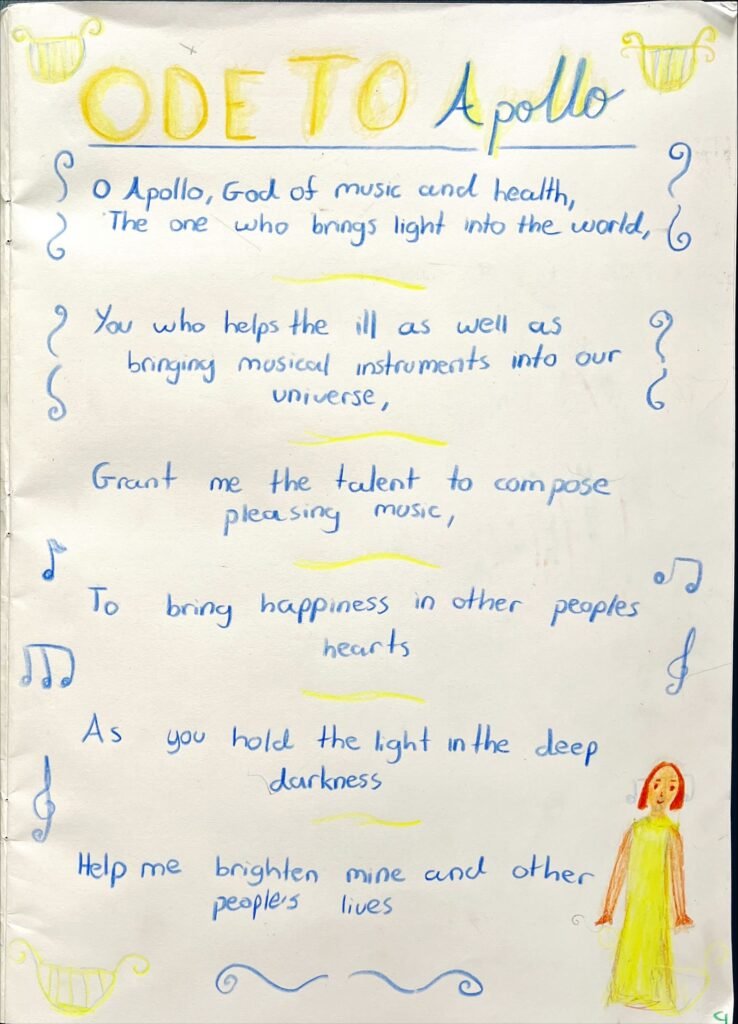 ODE TO Apollo
O Apollo, God of music and health,
The one who brings light into the world,
You who helps the ill as well as
bringing musical instruments into our
universe,
Grant me the talent to compose
pleasing music,
To bring happiness in other peoples
hearts
As you hold the light in the deep
darkness
Help me brighten mine and other
people's lives